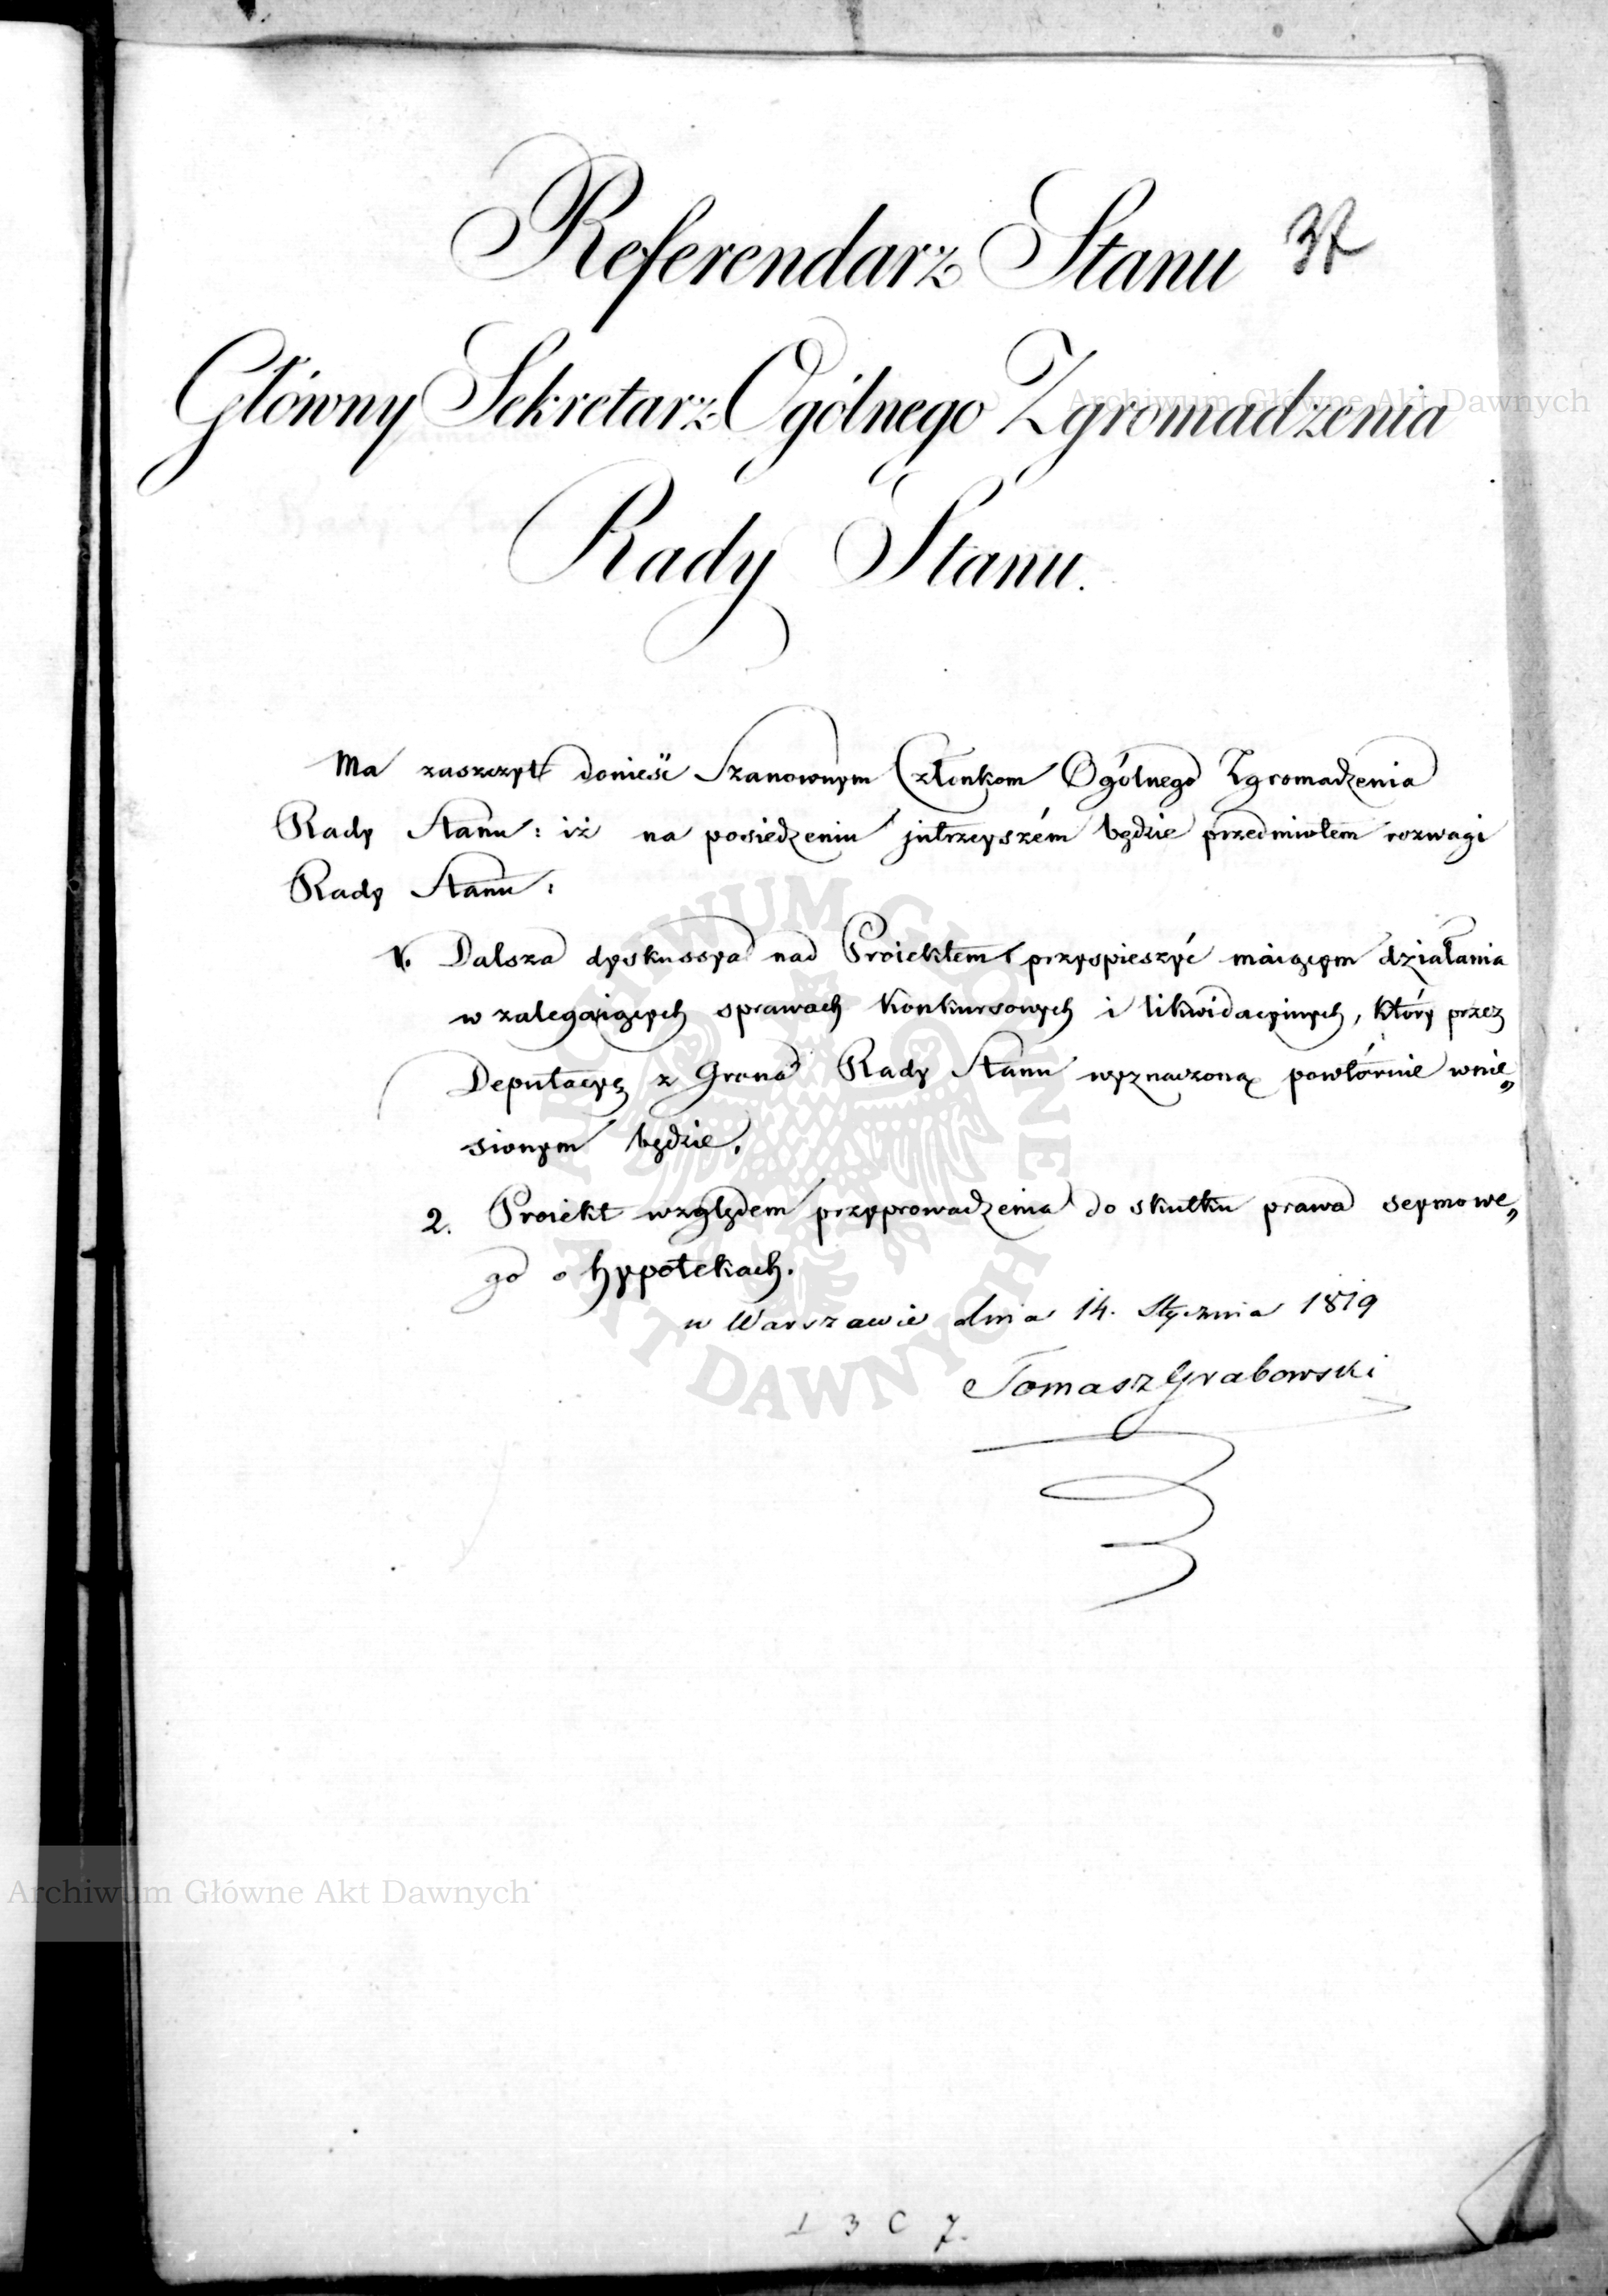 Referendarz Stanu 37
Główny Sekretarz Ogólnego Zgromadzenia
Archiwum Główne Akt Dawnych
Rady Stanu.
Ma zaszczyt donieść Szanownym Członkom Ogólnego Zgromadzenia
Rady Stanu: iż na posiedzeniu jutrzeyszém będzie przedmiotem rozwagi
Rady Stanu:
1. Dalsza dyskussya nad Proiektem przyspieszyć maiącym działania
w zalegaiących sprawach konkursowych i likwidacyinych, który przez
Deputacyą z Grona Rady Stanu wyznaczoną powtórnie wnie„
sionym będzie.
2. Proiekt względem przyprowadzenia do skutku prawa seymowe„
go o hypotekach.
w Warszawie dnia 14. Stycznia 1819
Tomasz Grabowski
ARCHIWUM GŁÓWNE AKT DAWNYCH
Archiwum Główne Akt Dawnych